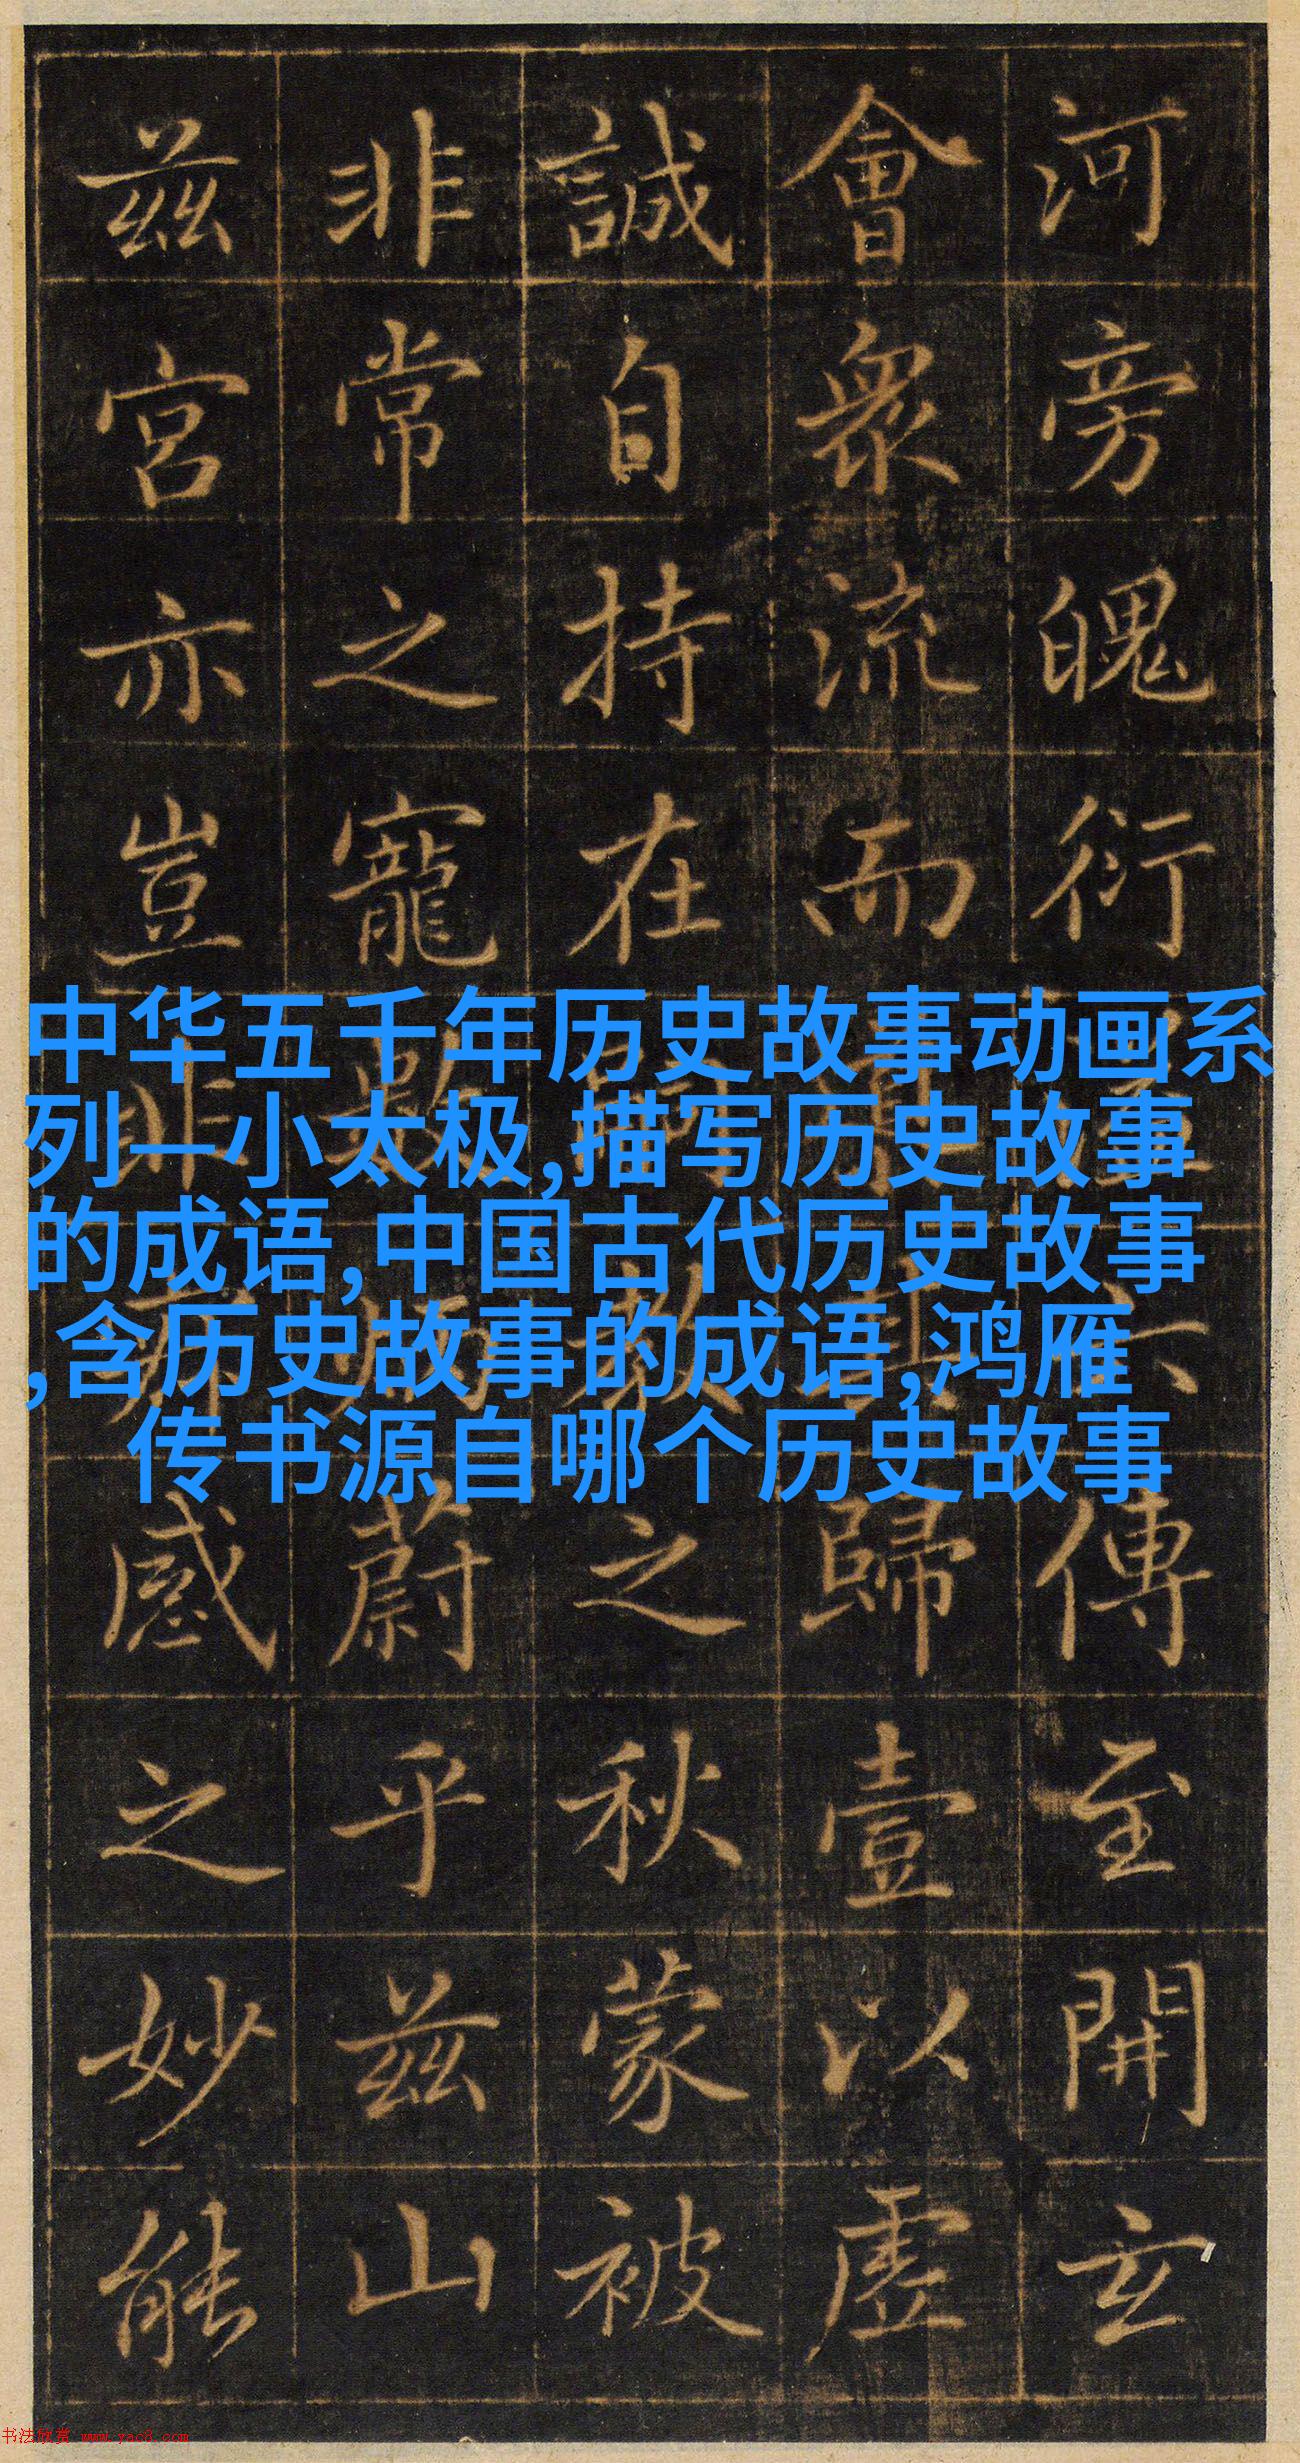 河旁魄衍傳至開玄
會眾流而歸壹以虛
誠自持在教之秋蒙被
非常之寵蔚乎茲山
茲宮亦豈非感之妙能
中华五千年历史故事动画系
列—小太极,描写历史故事
的成语,中国古代历史故事
,含历史故事的成语,鸿雁
传书源自哪个历史故事
书法欣赏 www.yac8.com